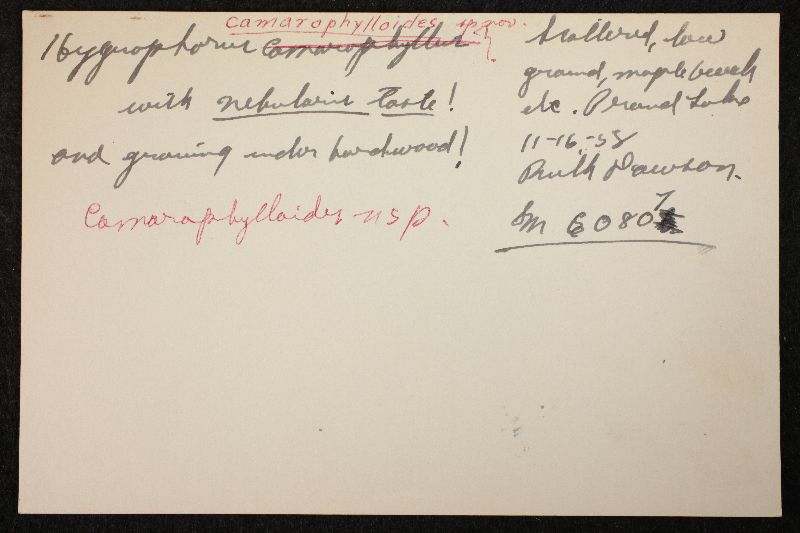 Camarophylloides sp. nov.
Hygrophorus Camarophyllus
with nebularis taste!
and growing under hardwood!
Camarophylloides n sp.
Scattered, low
ground, maple beech
etc. Proud Lake
11-16-58
Ruth Dawson.
Sm 60807